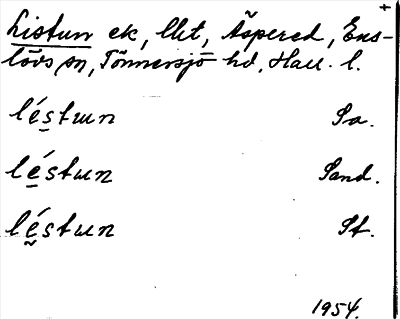 Listun ek, llit, Äspered, Ens-
lövs sn, Tönnersjö hd, Hall. l.
léstɯn Sa.
lé̱stɯn Sand.
lé̬stɯn St.
1954.